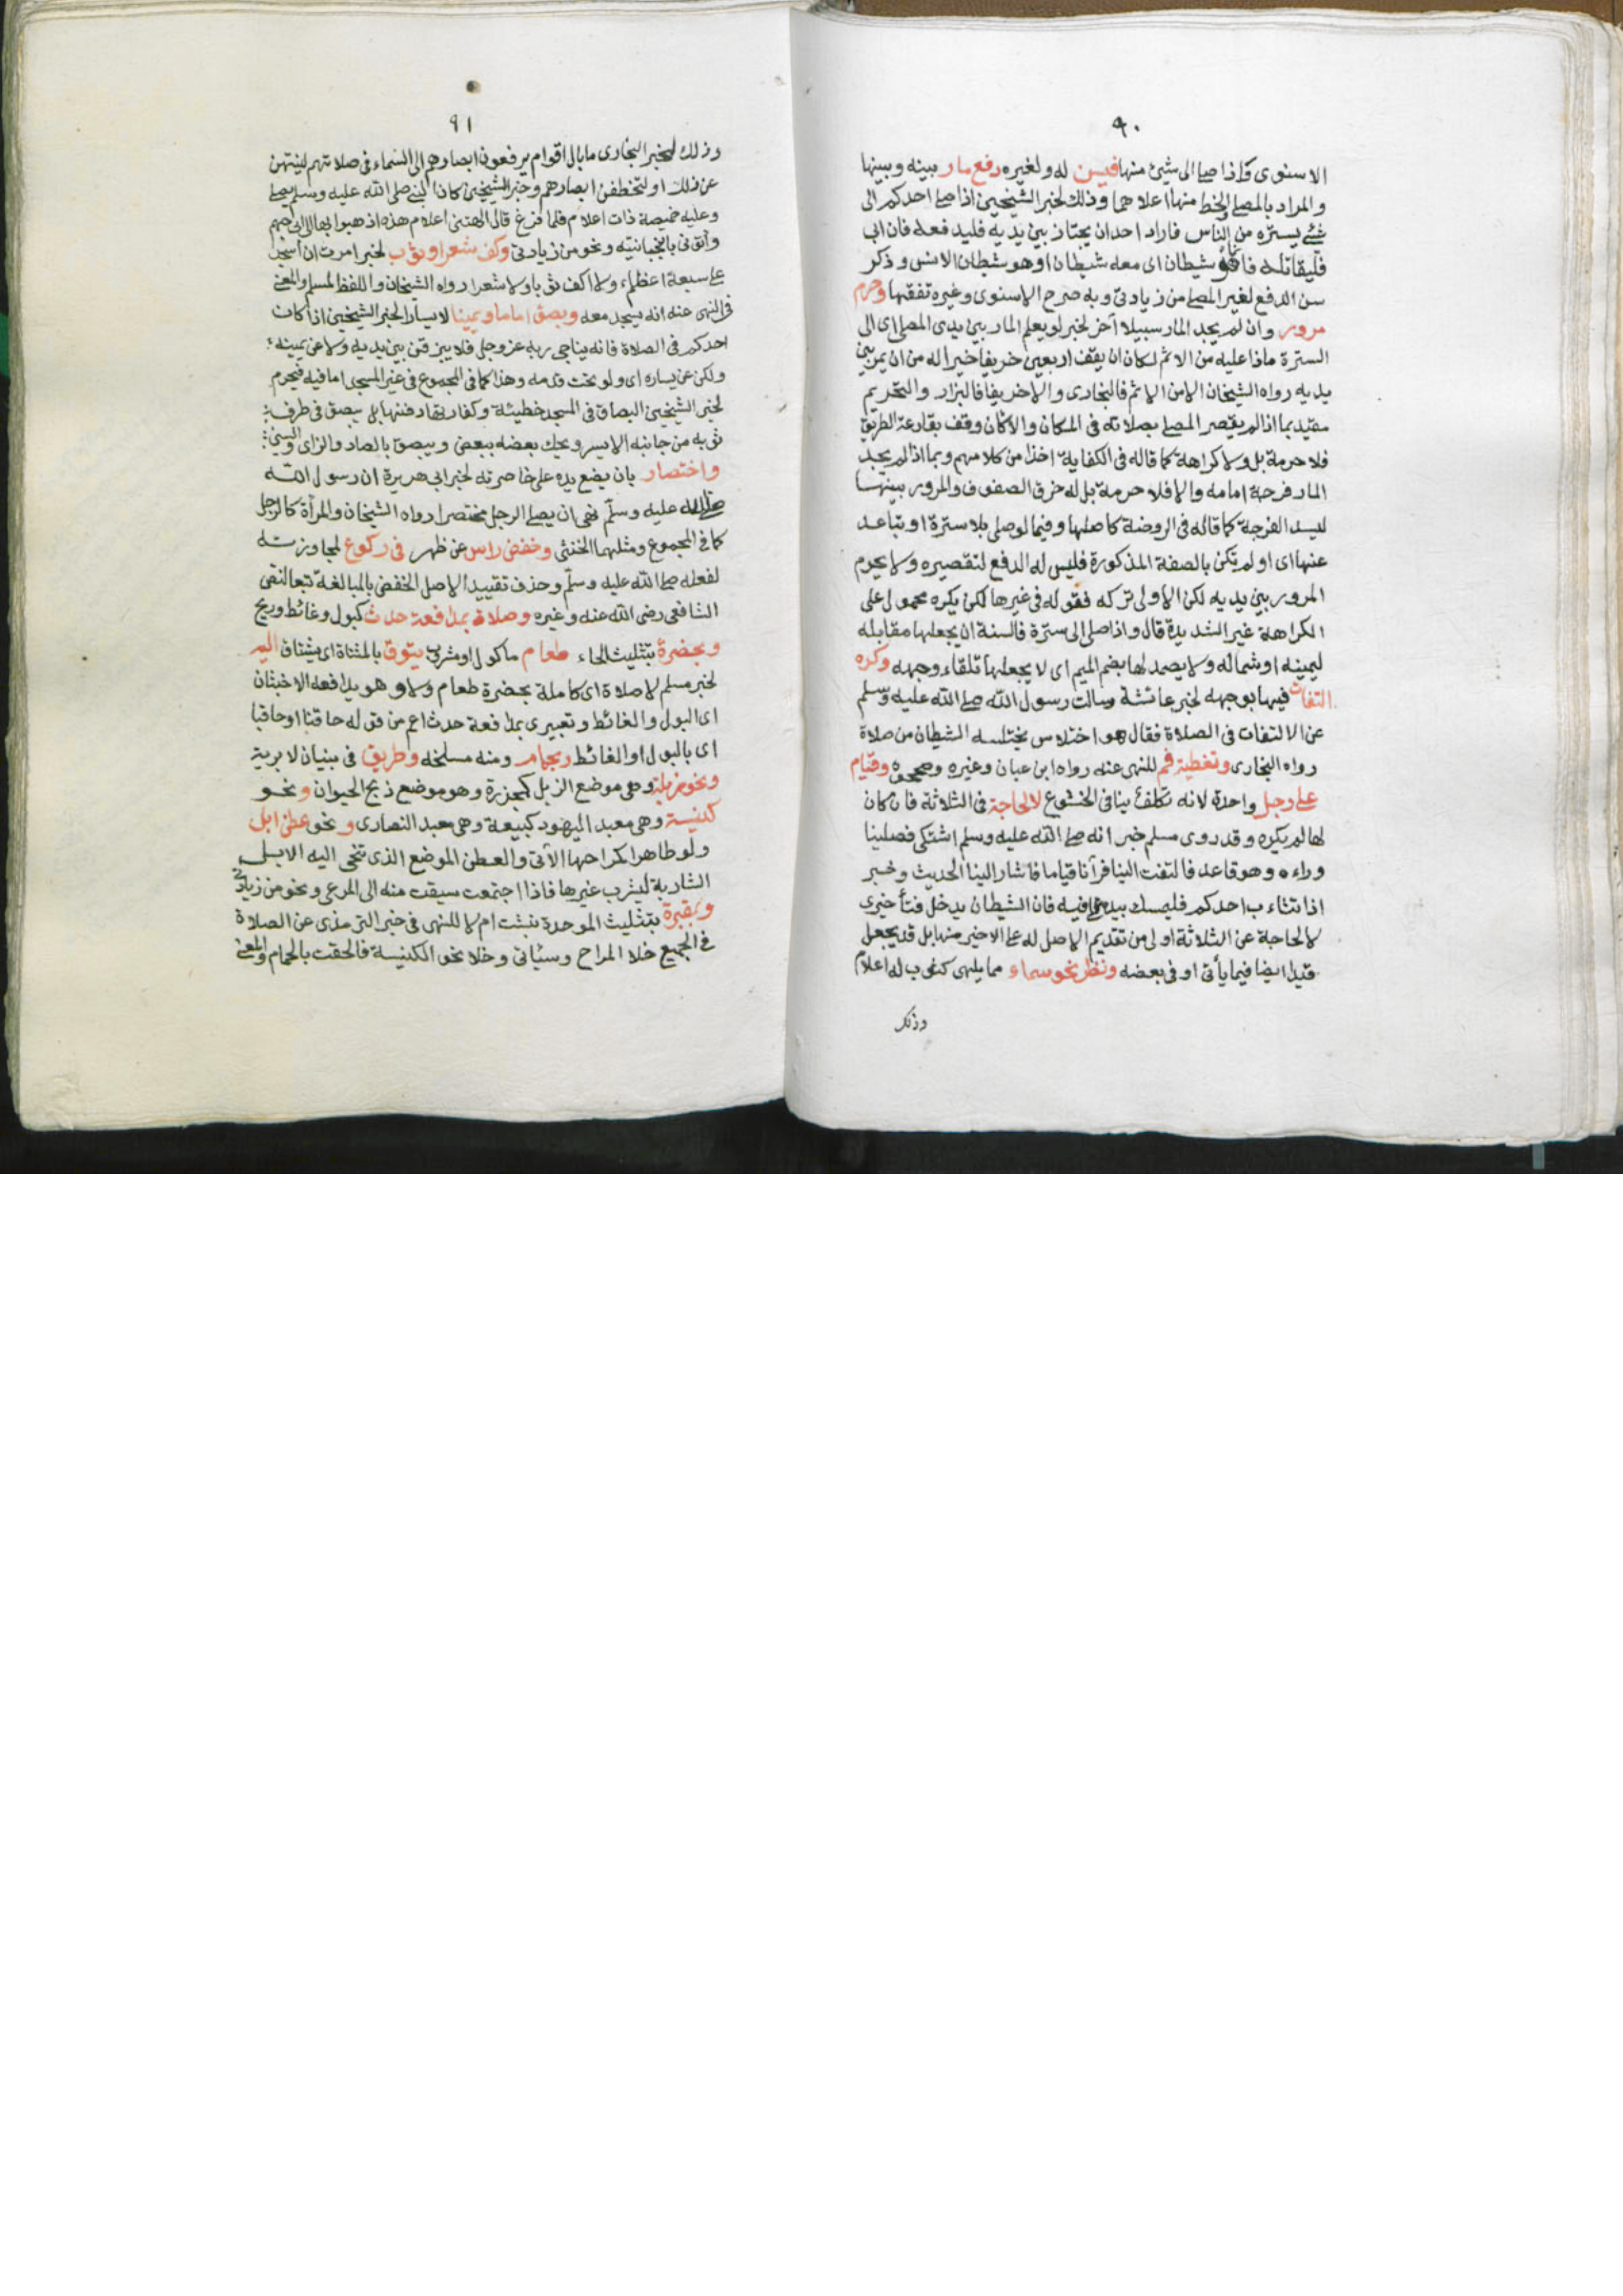 ٩٠
الاسنوى واذا صلى الى شيئ منها فيسن له ولغيره دفع مار بينه وبينها
والمراد بالمصلى والخط منها اعلاهما وذلك لخبر الشيخين اذا صلى احدكم الى
شئ يستره من الناس فاراد احد ان يجتاز بين يديه فليدفعه فان ابى
فليقاتله فانما هو شيطان اى معه شيطان او هو شيطان الانس وذكر
سن الدفع لغير المصلى من زيادتى وبه صرح الاسنوى وغيره تفقها وحرم
مرور وان لم يجد المار سبيلا آخر لخبر لو يعلم المار بين يدى المصلى اى الى
السترة ماذا عليه من الاثم لكان ان يقف اربعين خريفا خيرا له من ان يمر بين
يديه رواه الشيخان الا من الاثم فالبخارى والا خريفا فالبزار والتحريم
مقيد بما اذا لم يقصر المصلى بصلاته فى المكان والا كان وقف بقارعة الطريق
فلا حرمة بل ولا كراهة كما قاله فى الكفاية اخذا من كلامهم وبما اذا لم يجد
المار فرجة امامه والا فلا حرمة بل له خرق الصفوف والمرور بينها
ليسد الفرجة كما قاله فى الروضة كاصلها وفيما لو صلى بلا سترة او تباعد
عنها اى او لم تكن بالصفة المذكورة فليس له الدفع لتقصيره ولا يحرم
المرور بين يديه لكن الاولى تركه فقوله فى غيرها لكن يكره محمول على
الكراهة غير الشديدة قال واذا صلى الى سترة فالسنة ان يجعلها مقابله
ليمينه او شماله ولا يصمد لها بضم الميم اى لا يجعلها تلقاء وجهه وكره
التفات فيها بوجهه لخبر عائشة سالت رسول الله صلى الله عليه وسلم
عن الالتفات فى الصلاة فقال هو اختلاس يختلسه الشيطان من صلاة
رواه البخارى وتغطية فم للنهى عنه رواه ابن حبان وغيره وصححوه وقيام
على رجل واحدة لانه تكلف ينافى الخشوع لا لحاجة فى الثلاثة فان كان
لها لم يكره وقد روى مسلم خبر انه صلى الله عليه وسلم اشتكى فصلينا
وراءه وهو قاعد فالتفت الينا فرآنا قياما فاشار الينا الحديث وخبر
اذا تثاءب احدكم فليمسك بيده على فيه فان الشيطان يدخل فتأخيرى
لا لحاجة عن الثلاثة اولى من تقديم الاصل له على الاخير منها بل قد يجعل
قيدا ايضا فيما يأتى او فى بعضه ونظر نحو سماء مما يلهى كثوب له اعلام
وذلك
٩١
وذلك لخبر البخارى ما بال اقوام يرفعون ابصارهم الى السماء فى صلاتهم لينتهن
عن ذلك او لتخطفن ابصارهم وخبر الشيخين كان النبى صلى الله عليه وسلم يصلى
وعليه خميصة ذات اعلام فلما فرغ قال الهتنى اعلام هذه اذهبوا بها الى ابى جهم
وأتونى بانبجانيته ونحو من زيادتى وكف شعر او ثوب لخبر امرت ان أسجد
على سبعة اعظم ولا اكف ثوبا ولا شعرا رواه الشيخان واللفظ لمسلم والمعنى
فى النهى عنه انه يسجد معه وبصق اماما ويمينا لا يسارا لخبر الشيخين اذا كان
احدكم فى الصلاة فانه يناجى ربه عز وجل فلا يبزقن بين يديه ولا عن يمينه
ولكن عن يساره اى ولو تحت قدمه وهذا كما فى المجموع فى غير المسجد اما فيه فيحرم
لخبر الشيخين البصاق فى المسجد خطيئة وكفارتها دفنها بل يبصق فى طرف
ثوبه من جانبه الايسر ويحك بعضه ببعض ويبصق بالصاد والزاى والسين
واختصار بان يضع يده على خاصرته لخبر ابى هريرة ان رسول الله
صلى الله عليه وسلم نهى ان يصلى الرجل مختصرا رواه الشيخان والمرأة كالرجل
كما فى المجموع ومثلهما الخنثى وخفض راس عن ظهر فى ركوع لمجاوزته
لفعله صلى الله عليه وسلم وحذف تقييد الاصل الخفض بالمبالغة تبعا لنص
الشافعى رضى الله عنه وغيره وصلاة بمدافعة حدث كبول وغائط وريح
وبحضرة بتثليث الحاء طعام ماكول او مشروب يتوق بالمثناة اى يشتاق اليه
لخبر مسلم لا صلاة اى كاملة بحضرة طعام ولا وهو يدافعه الاخبثان
اى البول والغائط وتعبيرى بمدافعة حدث اعم من قوله حاقنا او حاقبا
اى بالبول او الغائط وبحمام ومنه مسلخه وطريق فى بنيان لا برية
ونحو مزبلة وهى موضع الزبل كمجزرة وهو موضع ذبح الحيوان ونحو
كنيسة وهى معبد اليهود كبيعة وهى معبد النصارى ونحو عطن ابل
ولو طاهرا كمراحها الآتى والعطن الموضع الذى تنحى اليه الابل
الشاربة ليشرب غيرها فاذا اجتمعت سيقت منه الى المرعى ونحو من زيادتى
وبمقبرة بتثليث الموحدة نبشت ام لا للنهى فى خبر الترمذى عن الصلاة
فى الجميع خلا المراح وسيأتى وخلا نحو الكنيسة فالحقت بالحمام والمعنى